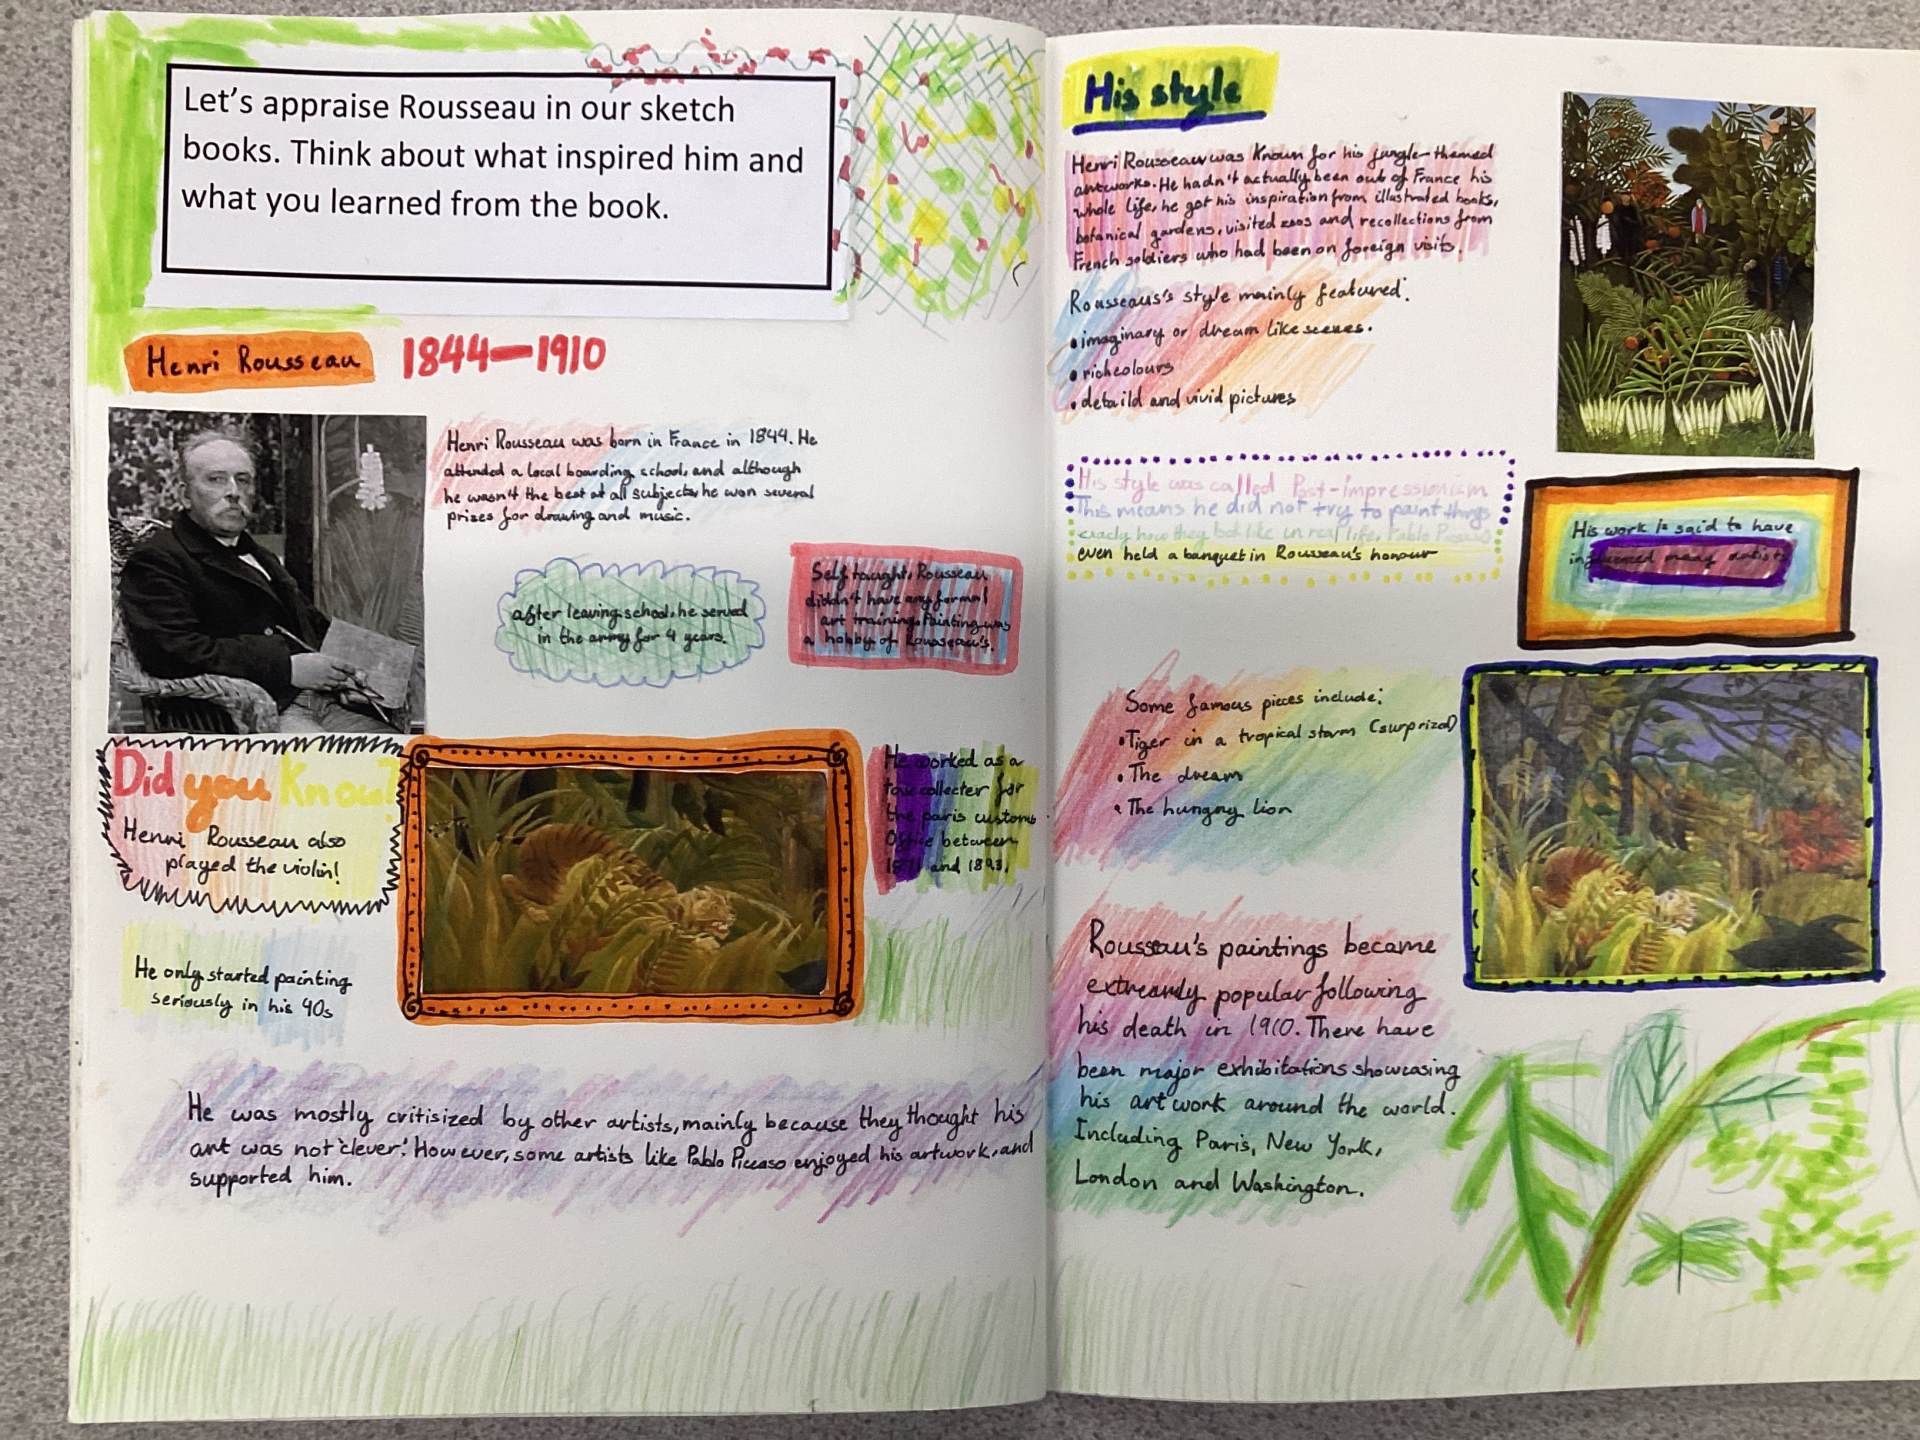 Let's appraise Rousseau in our sketch
books. Think about what inspired him and
what you learned from the book.
Henri Rousseau 1844-1910
Henri Rousseau was born in France in 1844. He
attended a local boarding school, and although
he wasn't the best at all subjects, he won several
prizes for drawing and music.
after leaving school, he served
in the army for 4 years.
Self taught, Rousseau
diddn't have any formal
art training. Painting was
a hobby of Rousseau's.
Did you Know?
Henri Rousseau also
played the violin!
He worked as a
collecter for
the paris customs
Office between
and 1893.
He only started painting
seriously in his 40s
He was mostly critisized by other artists, mainly because they thought his
art was not 'clever'. However, some artists like Pablo Piccaso enjoyed his artwork, and
supported him.
His style
Henri Rousseau was Known for his jungle-themed
artworks. He hadn't actually been out of France his
whole life, he got his inspiration from illustrated books,
botanical gardens, visited zoos and recollections from
French soldiers who had been on foreign visits.
Rousseaus's style mainly featured:
• imaginary or dream like scenes.
• rich colours
• detaild and vivid pictures
His style was called Post-impressionism
This means he did not try to paint things
how they look like in real life, Pablo
even held a banquet in Rousseau's honour
His work is said to have
influenced many artists
Some famous pieces include:
• Tiger in a tropical storm (surprized)
• The dream
• The hungry lion
Rousseau's paintings became
extreamly popular following
his death in 1910. There have
been major exhibitations showcasing
his artwork around the world.
Including Paris, New York,
London and Washington.